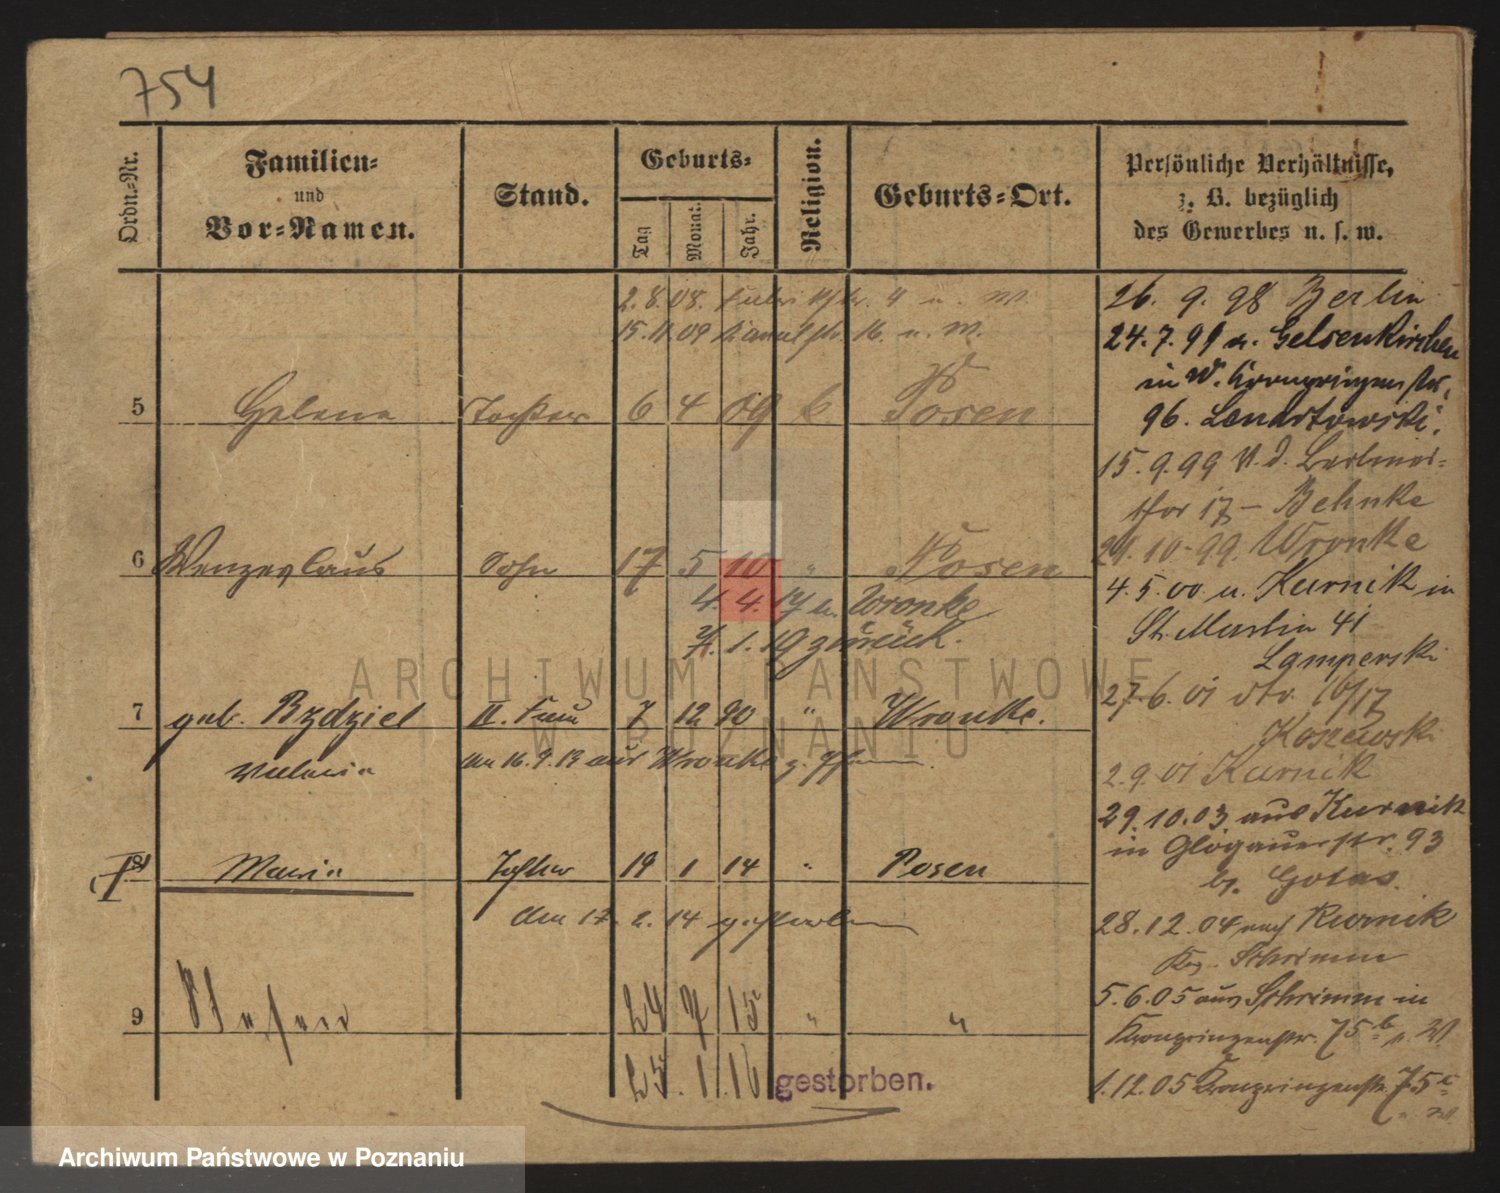 754
Ordn.-Nr.
Familien-
und
Vor-Namen.
Stand.
Geburts-
Tag
Monat.
Jahr.
Religion.
Geburts-Ort.
Persönliche Verhältnisse,
z. B. bezüglich
des Gewerbes u. s. w.
2.8.08.
15.11.09 Kanalstr. 16. u. W.
5 Helene Tochter 6 4 09 k. Posen
6 Wenzeslaus Sohn 17 5 10 " Posen
4. 4. 14 n. Wronke
1. 19 zurück.
7 geb. Bzdziel II. Frau 7 12 90 " Wronke.
Valeria
den 16.9.13 aus Wronke
8 Maria Tochter 19 1 14 " Posen
den 17. 2. 14 gestorben
9 Stefan 24 7 15 " "
25. 1. 16 gestorben.
26. 9. 98 Berlin
24.7.99 a. Gelsenkirchen
in W. Kronprinzenstr.
96. Lenartowski.
15.9.99 V. d. Berliner-
thor 17 – Behnke
24.10.99 Wronke
4.5.00 u. Kurnik in
St. Martin 41
Lamperski
27.6.01 16/17
Koszewski
2.9.01 Kurnik
29.10.03 aus Kurnik
in Glogauerstr. 93
b. Gotas.
28.12.04 nach Kurnik
Krs. Schrimm
5.6.05 aus Schrimm in
Kronprinzenstr. 75b u. W.
1.12.05 Kronprinzenstr. 75c
ARCHIWUM PAŃSTWOWE
W POZNANIU
Archiwum Państwowe w Poznaniu